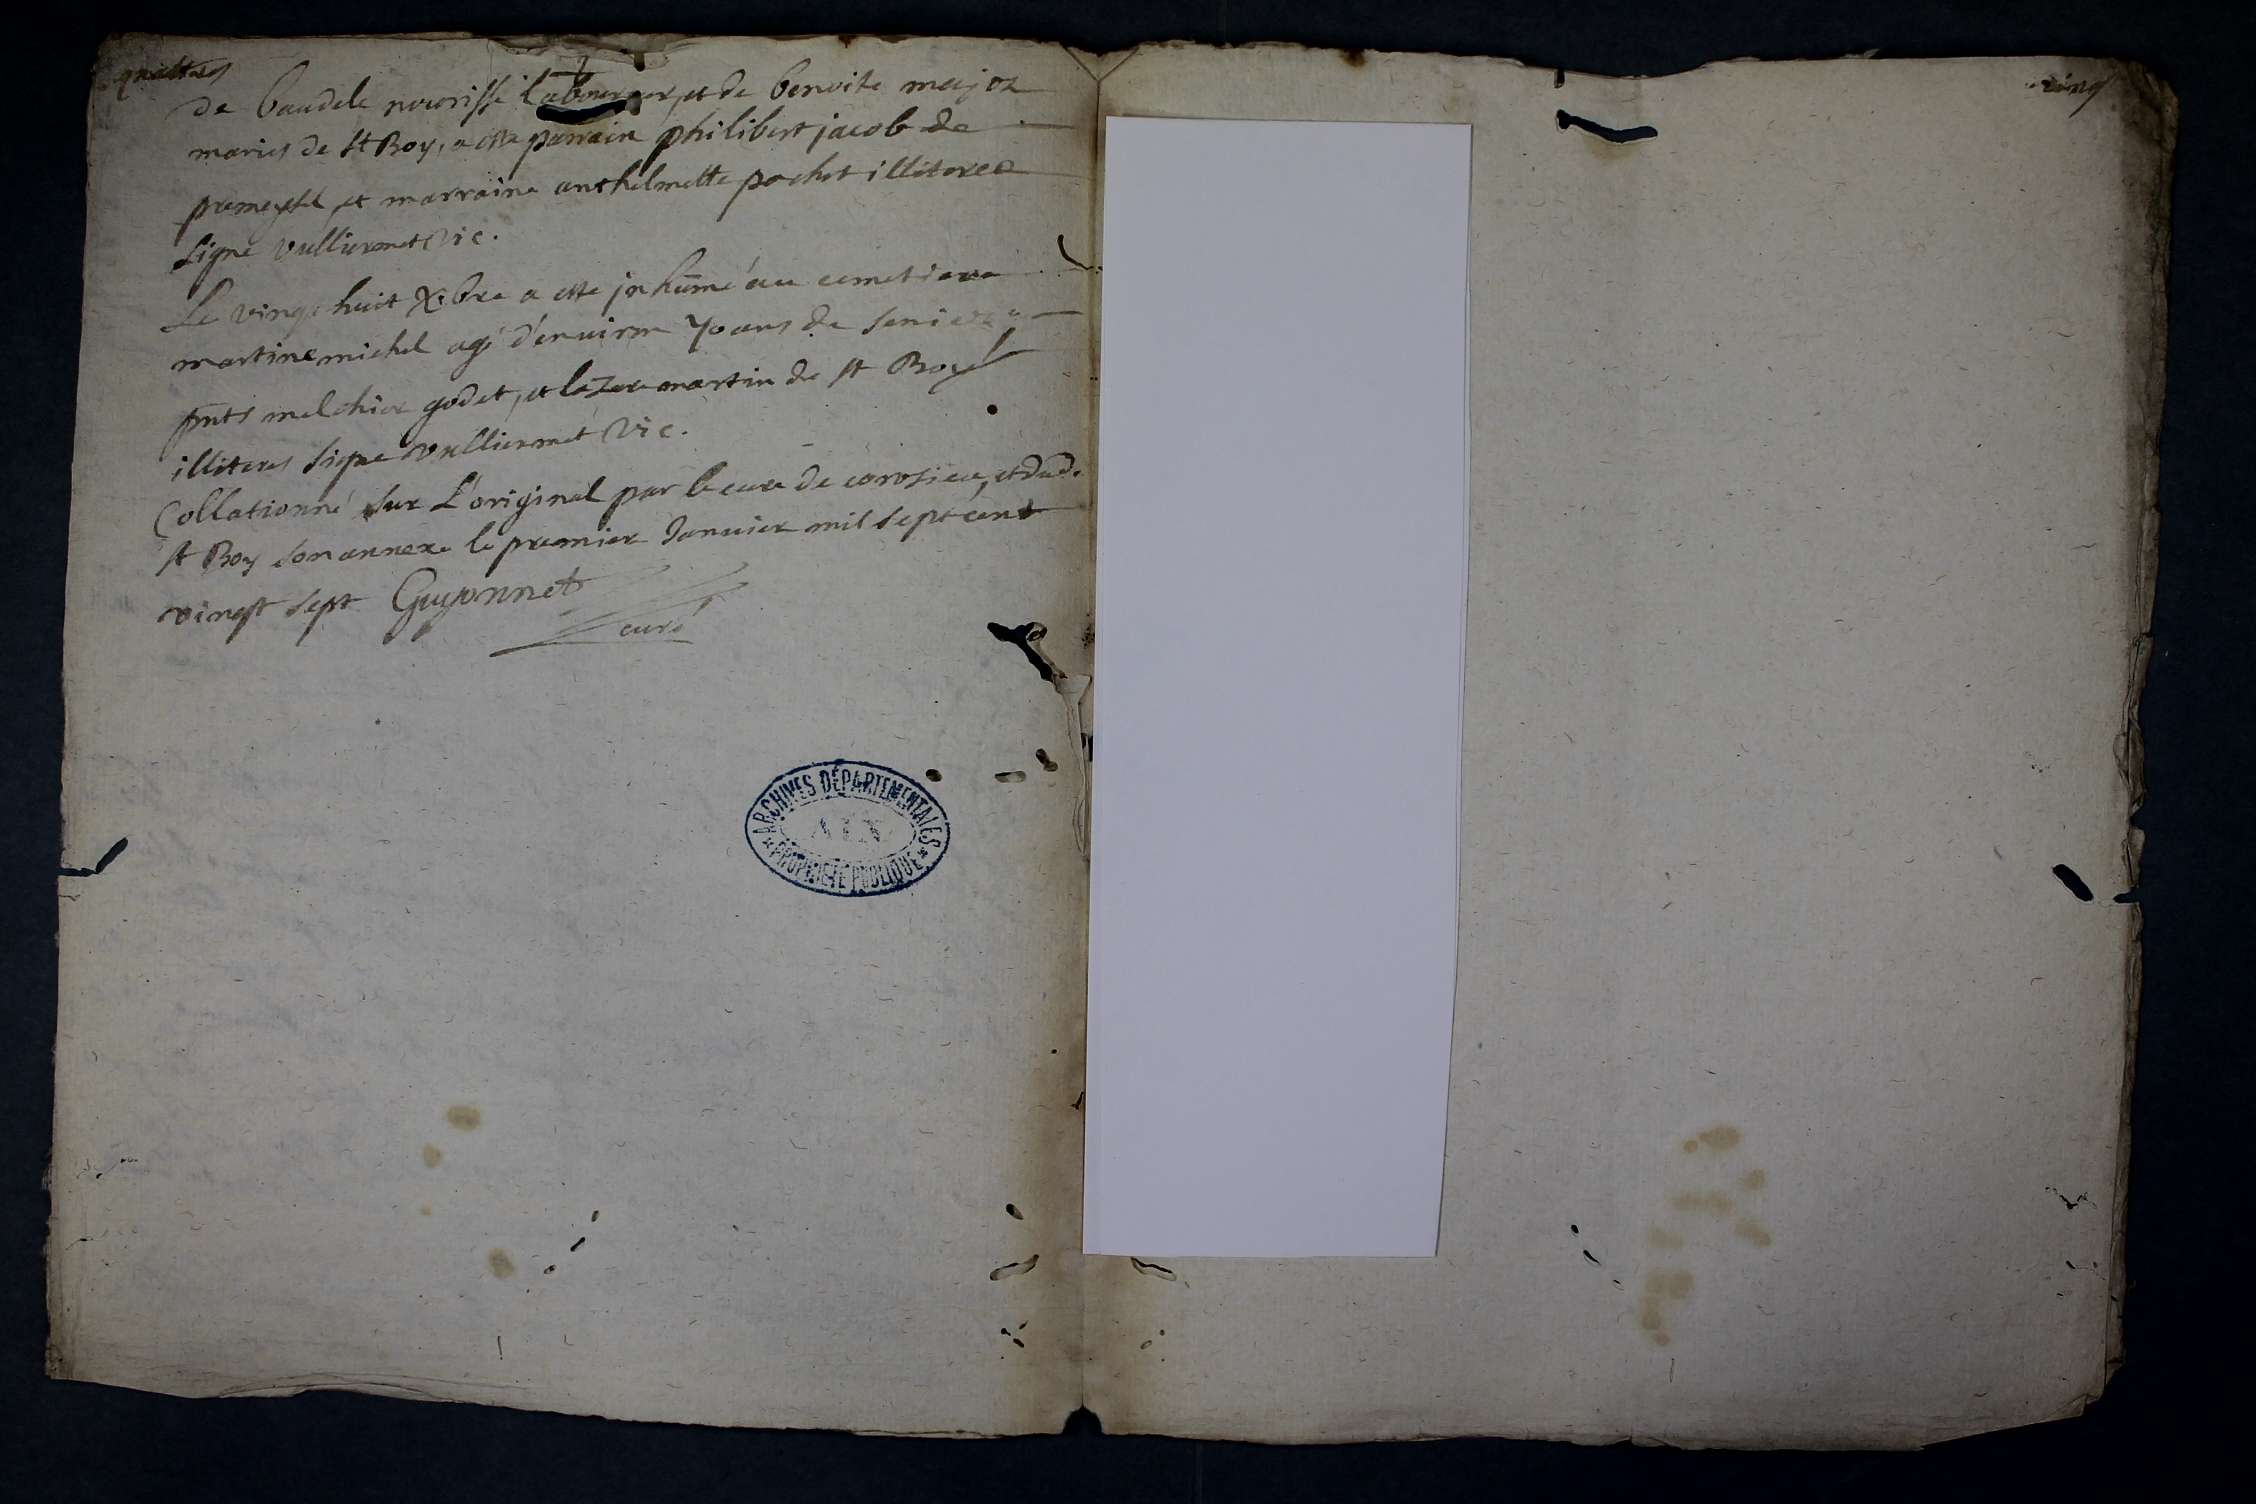 quattres
de baudele nourisse laboureur, et de benoite major
maries de st Boy, a este parrain philibert jacob de
premeysel, et marraine anthelmette pochet illiteres
signe vulliermet vic.
Le vingt huit Xbre a este jnhumé au cemetiere
martine michel agé d'environ 70 ans de
pnts melchior godet, et lazare martin de st Boys
illiteres signe vulliermet vic.
Collationné sur L'original par le cure de et dud.
st Boy son annexe le premier Janvier mil sept cent
vingt sept Guyonnet
curé
ARCHIVES DÉPARTEMENTALES
AIN
PROPRIÉTÉ PUBLIQUE
cinq